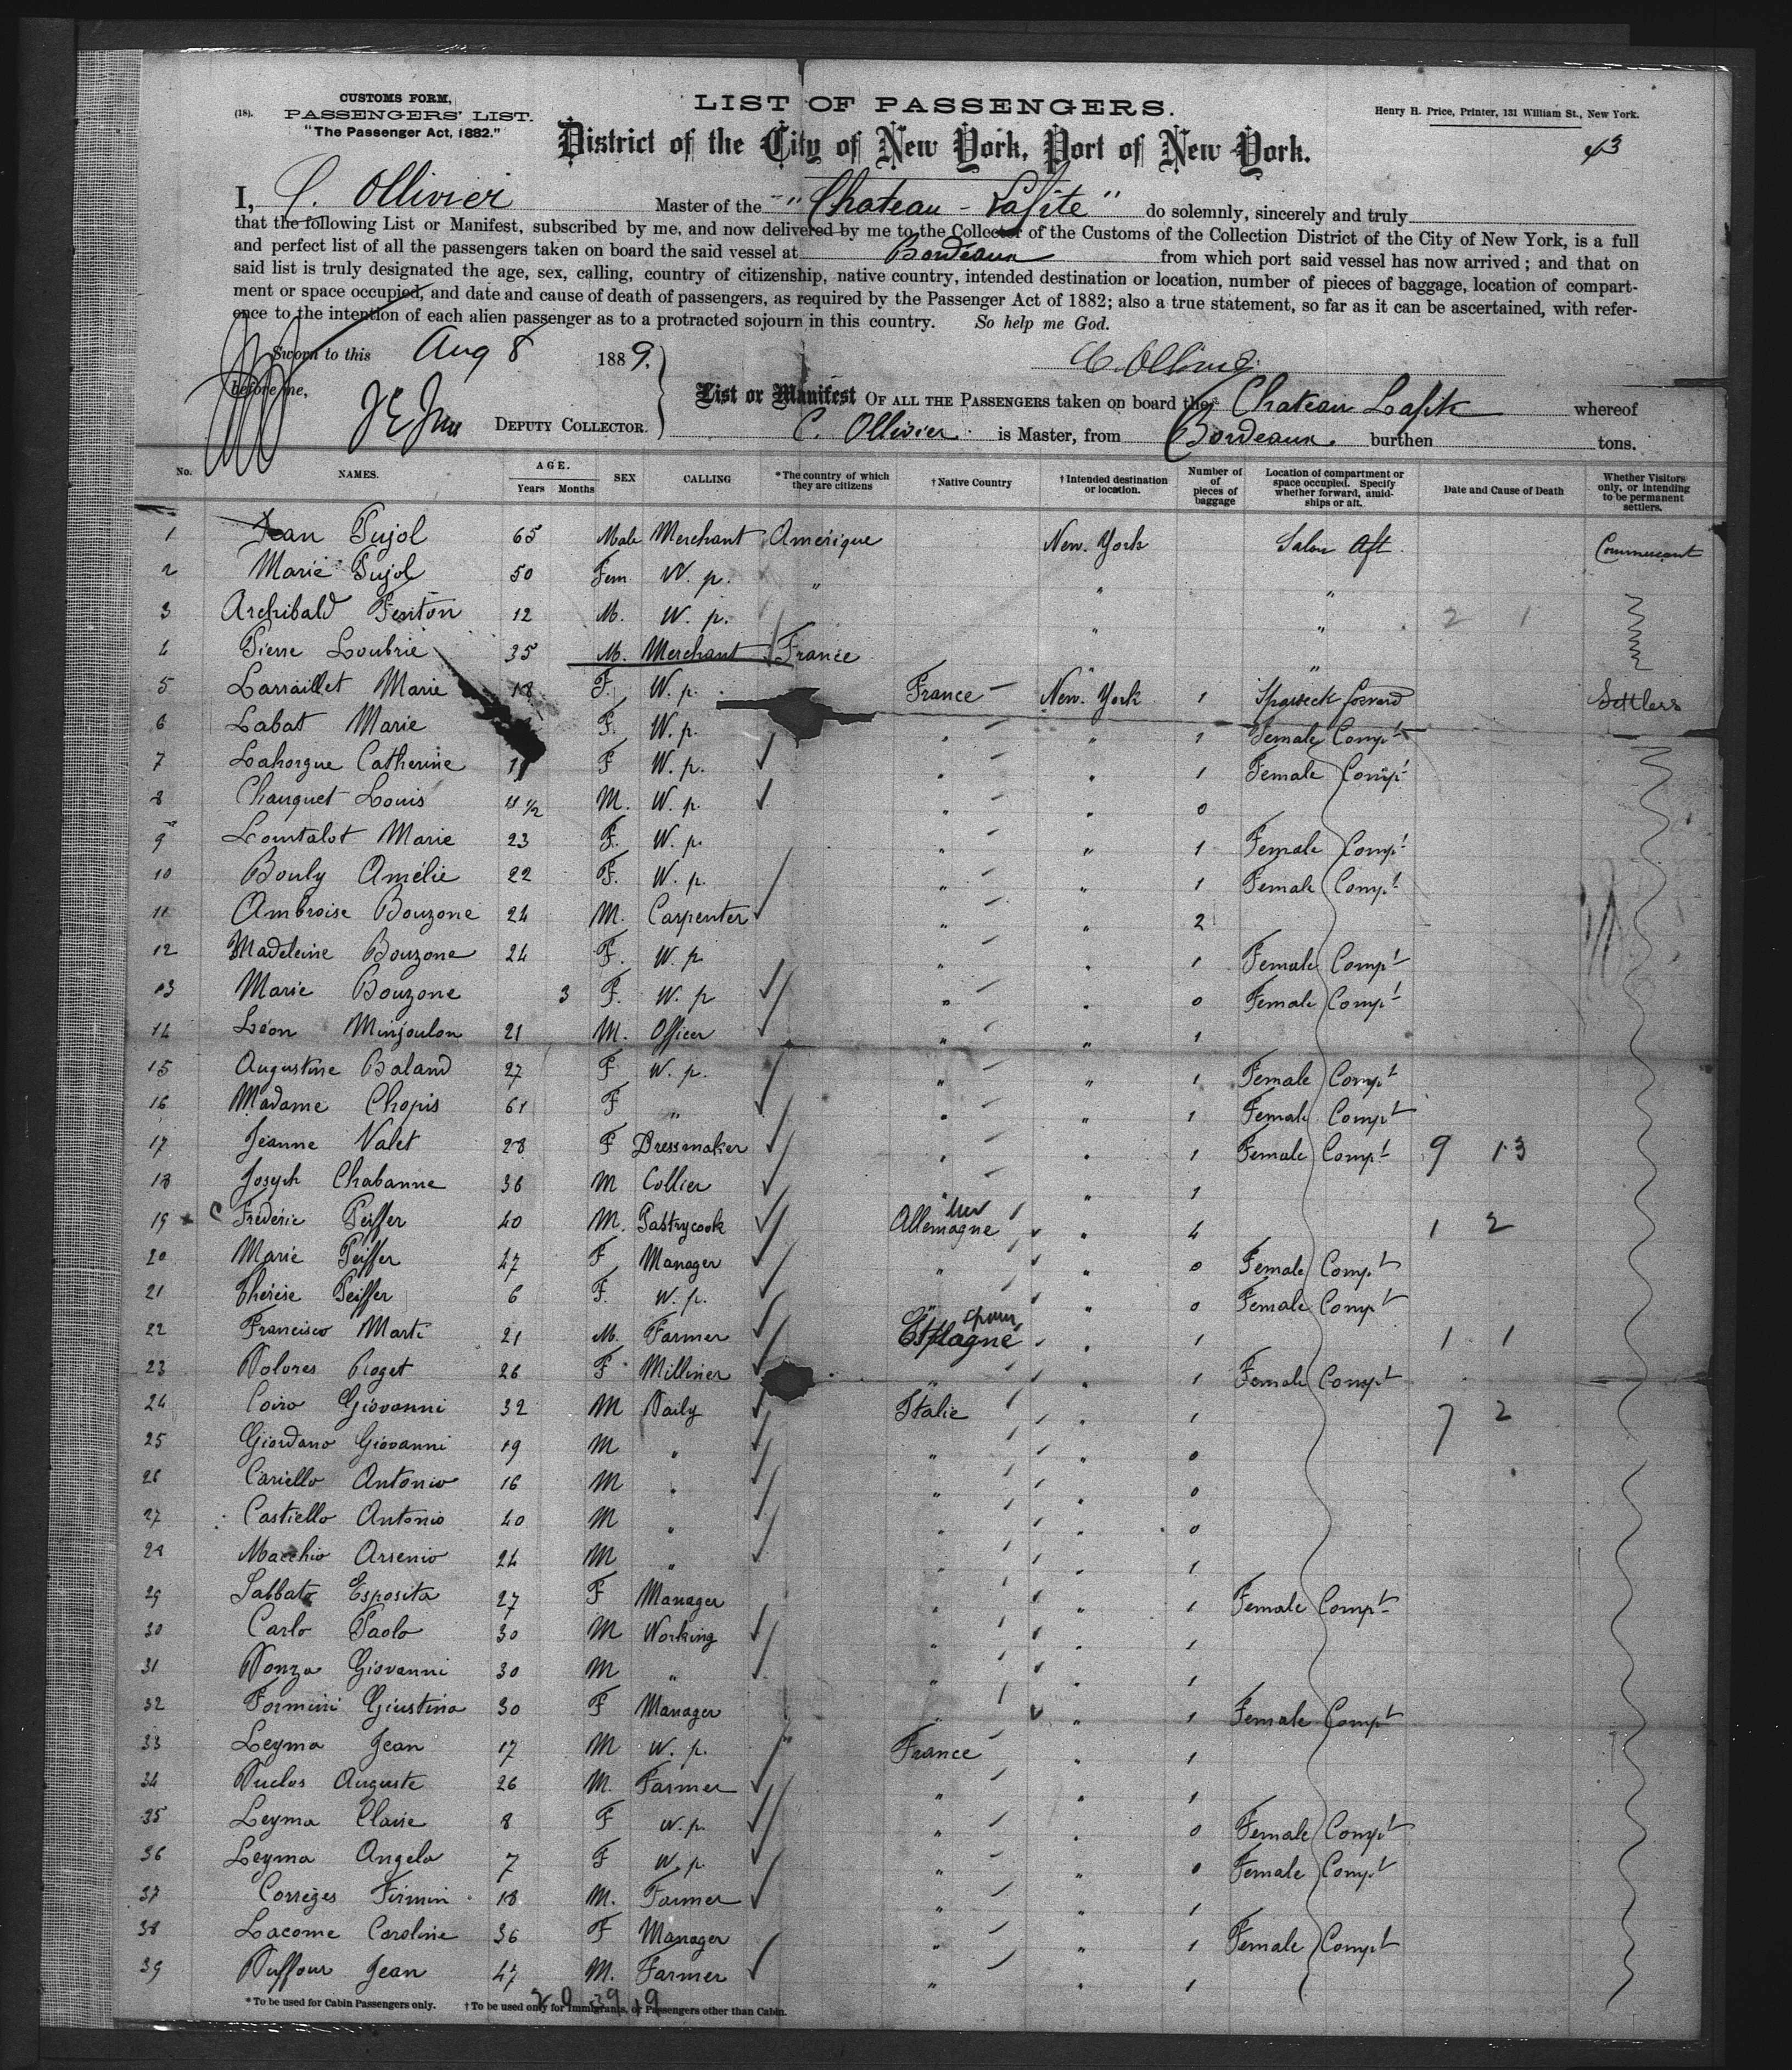 CUSTOMS FORM,
(18). PASSENGERS' LIST.
"The Passenger Act, 1882."
LIST OF PASSENGERS.
Henry H. Price, Printer, 131 William St., New York.
District of the City of New York, Port of New York.
43
I, C. Ollivier Master of the "Chateau-Lafite" do solemnly, sincerely and truly
that the following List or Manifest, subscribed by me, and now delivered by me to the Collector of the Customs of the Collection District of the City of New York, is a full
and perfect list of all the passengers taken on board the said vessel at Bordeaux from which port said vessel has now arrived; and that on
said list is truly designated the age, sex, calling, country of citizenship, native country, intended destination or location, number of pieces of baggage, location of compart-
ment or space occupied, and date and cause of death of passengers, as required by the Passenger Act of 1882; also a true statement, so far as it can be ascertained, with refer-
ence to the intention of each alien passenger as to a protracted sojourn in this country. So help me God.
Sworn to this Aug 8 1889.
before me,
DEPUTY COLLECTOR.
List or Manifest OF ALL THE PASSENGERS taken on board the Chateau Lafite whereof
C. Ollivier is Master, from Bordeaux. burthen tons.
No. NAMES. AGE. Years Months SEX CALLING *The country of which they are citizens †Native Country †Intended destination or location. Number of pieces of baggage Location of compartment or space occupied. Specify whether forward, amidships or aft. Date and Cause of Death Whether Visitors only, or intending to be permanent settlers.
1 Jean Pujol 65 Male Merchant Amerique New. York Salon Aft Commercant
2 Marie Pujol 50 Fem W. p. " " "
3 Archibald Fenton 12 M. W. p. " " 2 1
4 Pierre Loubrie 35 M. Merchant France " "
5 Larraillet Marie 18 F. W. p. France New. York 1 Spardeck forward Settlers
6 Labat Marie F. W. p. " " 1 Female Compt
7 Lahorgue Catherine F W. p. " " 1 Female Compt
8 Chauquet Louis 11 1/2 M. W. p. " " 0
9 Lourtalot Marie 23 F. W. p. " " 1 Female Compt
10 Bouly Amélie 22 F. W. p. " " 1 Female Compt
11 Ambroise Bouzone 24 M. Carpenter " " 2
12 Madeleine Bouzone 24 F. W. p " " 1 Female Compt
13 Marie Bouzone 3 F. W. p " " 0 Female Compt
14 Léon Minjoulou 21 M. Officer " " 1
15 Augustine Baland 27 F W. p. " " 1 Female Compt
16 Madame Chopis 61 F " " " 1 Female Compt
17 Jeanne Valet 28 F Dressmaker " " 1 Female Compt 9 13
18 Joseph Chabanne 36 M Collier " " 1
19 Frédéric Peiffer 40 M. Pastrycook Allemagne " 4 1 2
20 Marie Peiffer 47 F Manager " " 0 Female Compt
21 Thérèse Peiffer 6 F. W. p. " " 0 Female Compt
22 Francisco Marti 21 M. Farmer Espagne Spain " 1 1 1
23 Dolores Roget 26 F Milliner " " 1 Female Compt
24 Coiro Giovanni 32 M Daily Italie " 1 7 2
25 Giordano Giovanni 19 M " " " 0
26 Cariello Antonio 16 M " " " 0
27 Castiello Antonio 40 M " " " 0
28 Macchio Arsenio 24 M " " " 1
29 Sabbato Esposita 27 F Manager " " 1 Female Compt
30 Carlo Paolo 30 M Working " " 1
31 Donza Giovanni 30 M " " " 1
32 Formini Giustina 30 F Manager " " 1 Female Compt
33 Leyma Jean 17 M W. p. France " 1
34 Duclos Auguste 26 M. Farmer " " 1
35 Leyma Claire 8 F W. p. " " 0 Female Compt
36 Leyma Angela 7 F W. p. " " 0 Female Compt
37 Corrèges Firmin 18 M. Farmer " " 1
38 Lacome Caroline 36 F Manager " " 1 Female Compt
39 Duffour Jean 47 M. Farmer " " 1
*To be used for Cabin Passengers only. †To be used only for Immigrants, or Passengers other than Cabin.
20 39 19